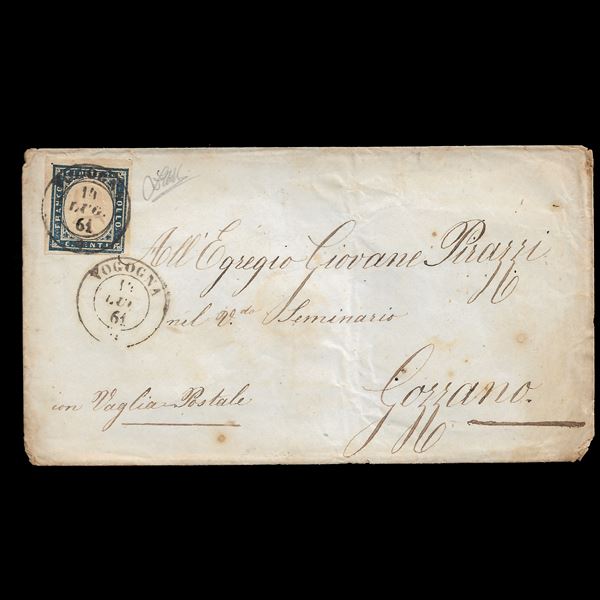 FRANCO BOLLO
C. VENTI
14
LUG.
61
VOGOGNA
14
LUG
61
All'Egregio Giovane Pirazzi
nel V.do Seminario
Gozzano.
con Vaglia Postale